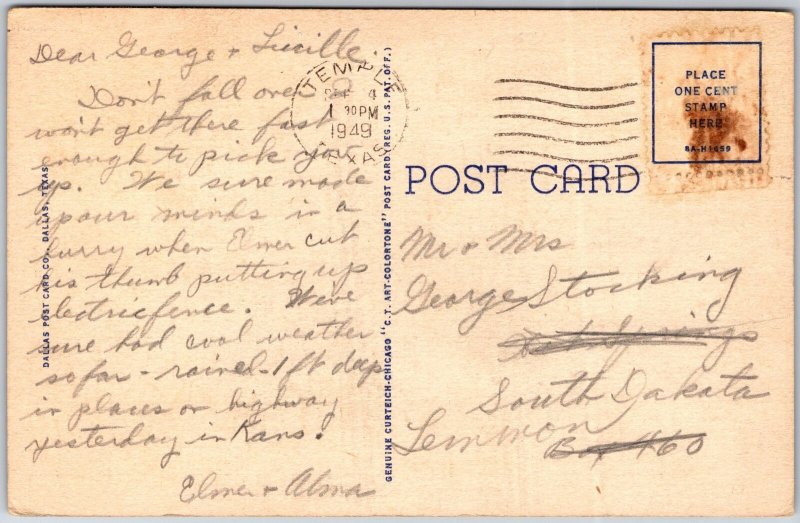 Dear George + Lucille.
Don't fall over I
won't get there fast
enough to pick you
up. We sure made
up our minds in a
hurry when Elmer cut
his thumb putting up
electric fence. We've
sure had cool weather
so far - rained - 1 ft deep
in places on highway
yesterday in Kans.
Elmer + Alma
DALLAS POST CARD CO., DALLAS, TEXAS
GENUINE CURTEICH-CHICAGO "C.T. ART-COLORTONE" POST CARD (REG. U.S. PAT. OFF.)
TEMPLE
4
30 PM
1949
TEXAS
PLACE
ONE CENT
STAMP
HERE
8A-H1659
POST CARD
Mr + Mrs
George Stocking
Springs
South Dakota
Lemmon
Box 460